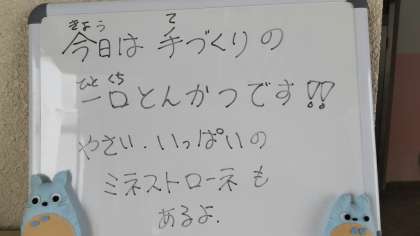 きょう て
今日は 手づくりの
ひと くち
一口とんかつです!!
やさい.いっぱいの
ミネストローネも
あるよ.